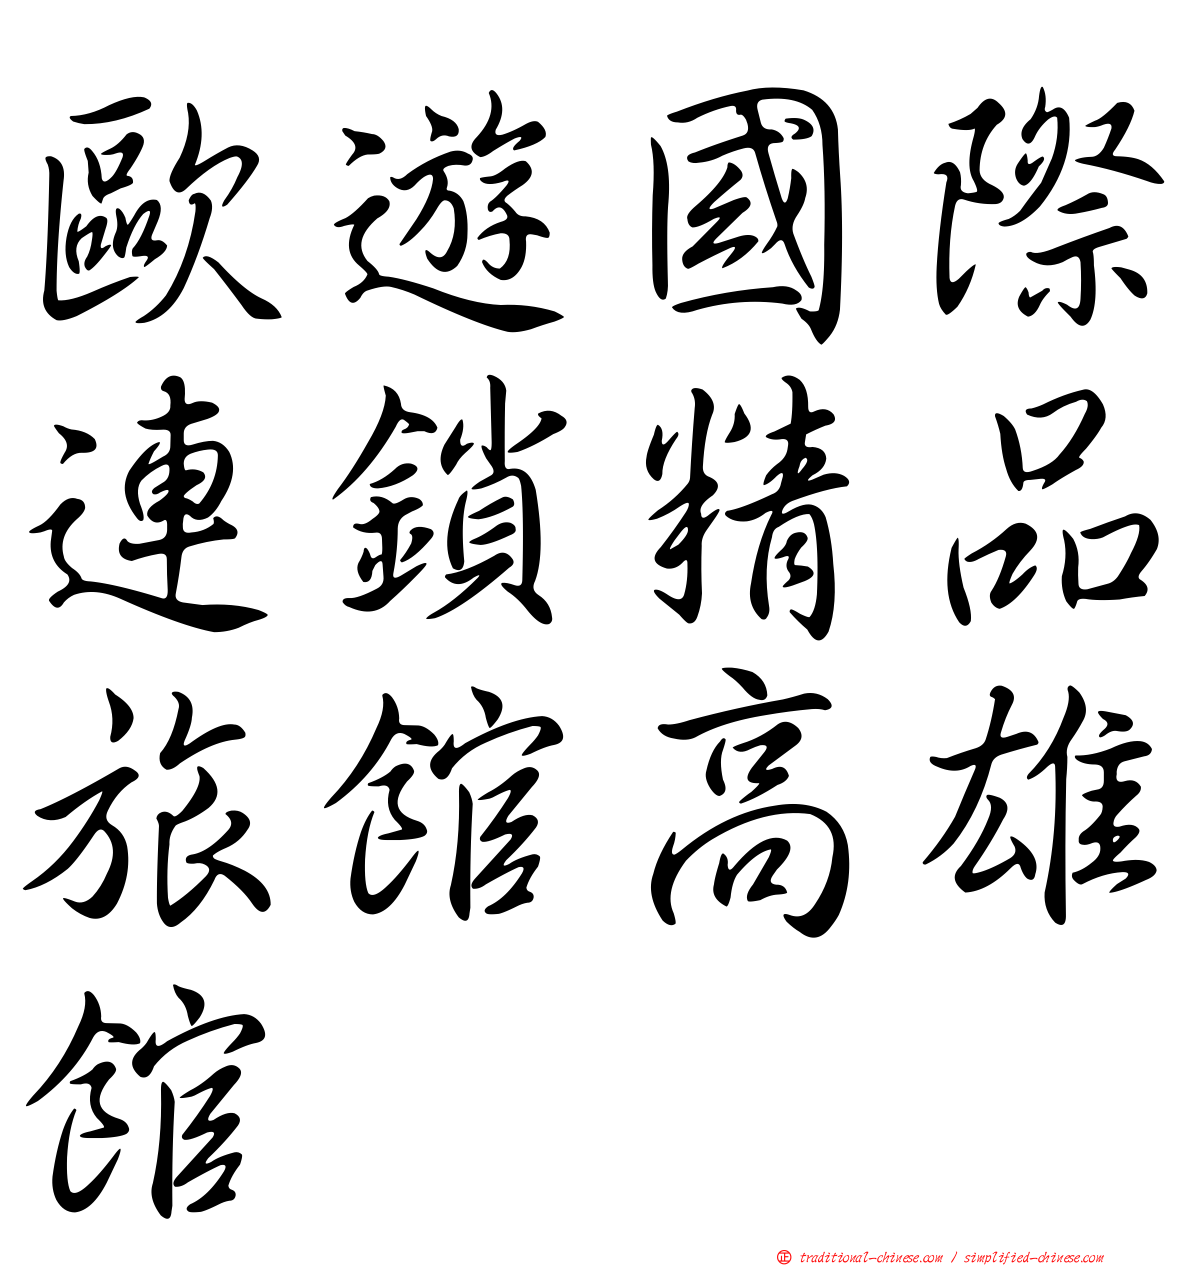 歐遊國際
連鎖精品
旅館高雄
館
正 traditional-chinese.com / simplified-chinese.com